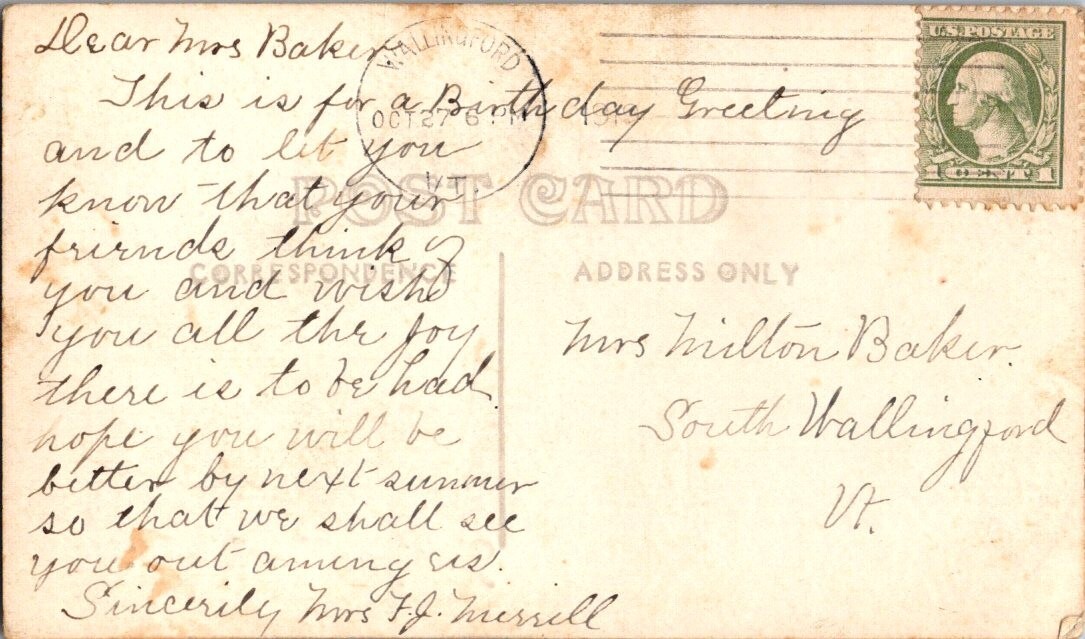 Dear Mrs Baker
This is for a Birthday Greeting
and to let you
know that your
friends think of
you and wish
you all the joy
there is to be had.
hope you will be
better by next summer
so that we shall see
you out among us.
Sincerily Mrs F.J. Merrill
WALLINGFORD
OCT 27 6 PM
VT.
U.S. POSTAGE
1 CENT 1
POST CARD
CORRESPONDENCE
ADDRESS ONLY
Mrs Milton Baker.
South Wallingford
Vt.